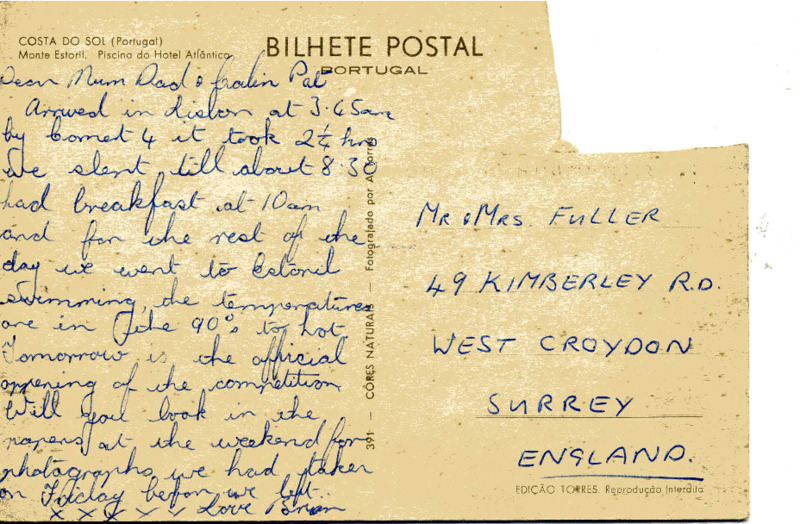 COSTA DO SOL (Portugal)
Monte Estoril. Piscina do Hotel Atlântico
BILHETE POSTAL
PORTUGAL
Dear Mum Dad & Pat
Arrived in Lisbon at 3.45am
by Comet 4 it took 2¼ hrs
We slept till about 8.30
had breakfast at 10am
and for the rest of the
day we went to Estoril
swimming, the temperatures
are in the 90°s to hot
Tomorrow is the official
oppening of the competition
Will you look in the
papers at the weekend for
photographs we had taken
on Friday before we left.
x x x x x Love Brian
391 — CÔRES NATURAIS — Fotografado por A. Torres
MR & MRS. FULLER
49 KIMBERLEY R.D.
WEST CROYDON
SURREY
ENGLAND.
EDIÇÃO TORRES. Reprodução Interdita